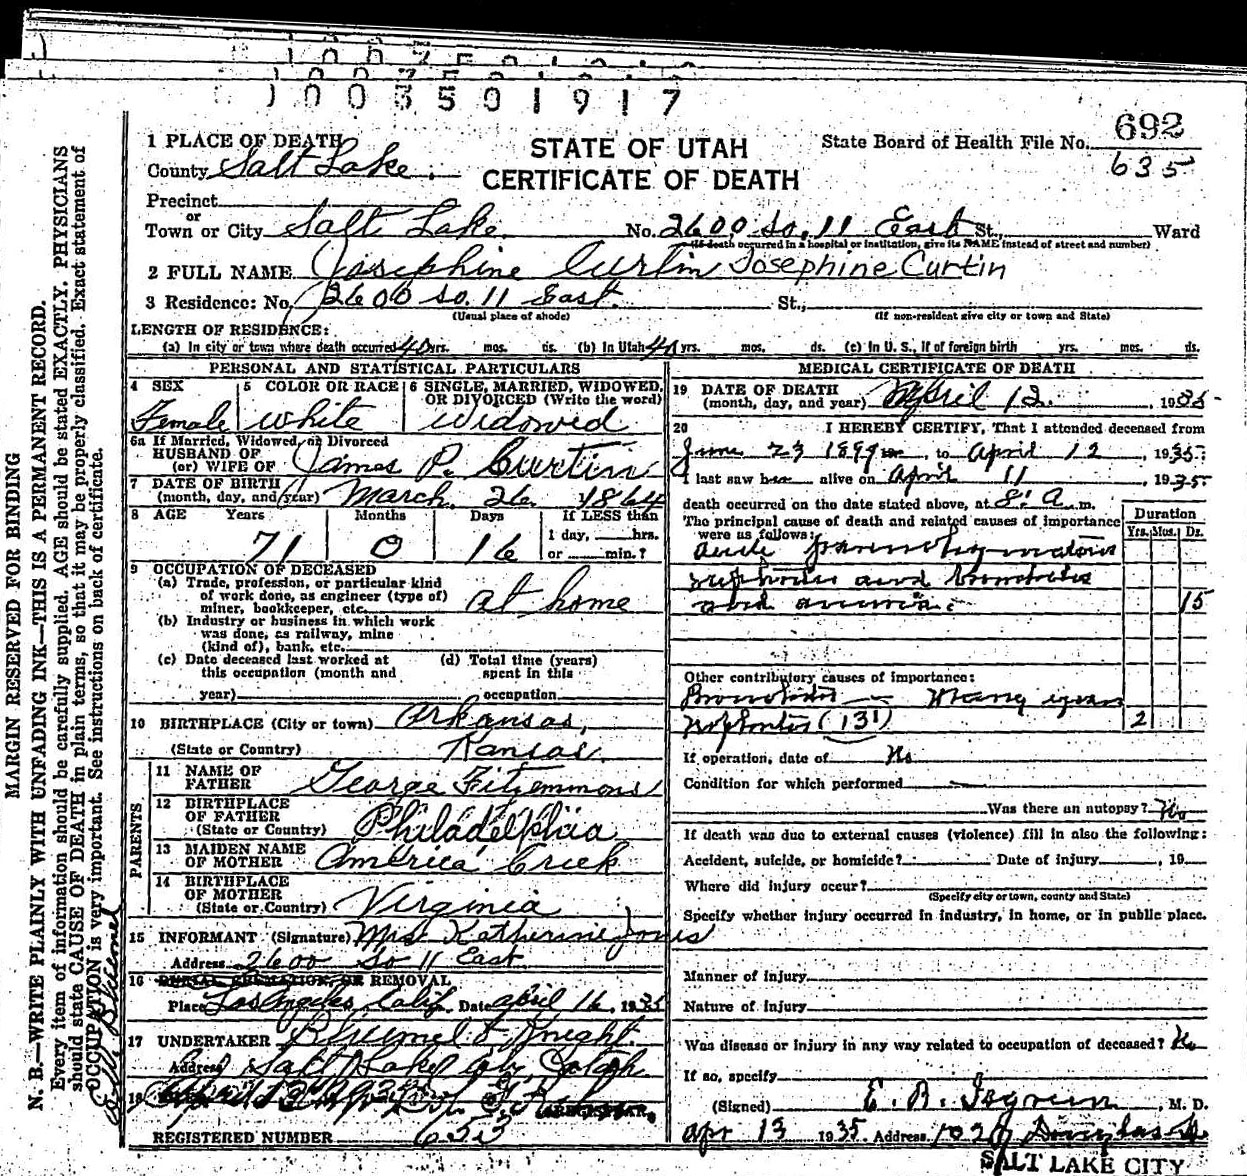 1003501917
1 PLACE OF DEATH
STATE OF UTAH
CERTIFICATE OF DEATH
State Board of Health File No. 692
635
County Salt Lake
Precinct
or
Town or City Salt Lake No. 2600 So. 11 East St., Ward
(If death occurred in a hospital or institution, give its NAME instead of street and number)
2 FULL NAME Josephine Curtin Josephine Curtin
3 Residence: No. 2600 So. 11 East. St.,
(Usual place of abode) (If non-resident give city or town and State)
LENGTH OF RESIDENCE:
(a) In city or town where death occurred 40 yrs. mos. ds. (b) In Utah 40 yrs. mos. ds. (c) In U. S., If of foreign birth yrs. mos. ds.
PERSONAL AND STATISTICAL PARTICULARS
4 SEX Female
5 COLOR OR RACE White
6 SINGLE, MARRIED, WIDOWED, OR DIVORCED (Write the word) Widowed
6a If Married, Widowed, or Divorced
HUSBAND OF
(or) WIFE OF James P. Curtin
7 DATE OF BIRTH
(month, day, and year) March 26 1864
8 AGE Years Months Days If LESS than
71 0 16 1 day, hrs.
or min.?
9 OCCUPATION OF DECEASED
(a) Trade, profession, or particular kind
of work done, as engineer (type of)
miner, bookkeeper, etc. at home
(b) Industry or business in which work
was done, as railway, mine
(kind of), bank, etc.
(c) Date deceased last worked at
this occupation (month and
year)
(d) Total time (years)
spent in this
occupation
10 BIRTHPLACE (City or town) Arkansas,
(State or Country) Kansas.
PARENTS
11 NAME OF
FATHER George Fitzemmons
12 BIRTHPLACE
OF FATHER
(State or Country) Philadelphia
13 MAIDEN NAME
OF MOTHER America Crick
14 BIRTHPLACE
OF MOTHER
(State or Country) Virginia
15 INFORMANT (Signature) Mrs Katherine Jones
Address 2600 So 11 East
16 BURIAL, CREMATION, OR REMOVAL
Place Los Angeles, Calif. Date April 16, 1935
17 UNDERTAKER Knight.
Address Salt Lake City, Utah.
18
REGISTRAR.
REGISTERED NUMBER 653
MEDICAL CERTIFICATE OF DEATH
19 DATE OF DEATH
(month, day, and year) April 12. 1935
20 I HEREBY CERTIFY, That I attended deceased from
June 23 1899, to April 12, 1935.
I last saw her alive on April 11, 1935
death occurred on the date stated above, at 8: A.m.
The principal cause of death and related causes of importance
were as follows:
Duration
Yrs. Mos. Ds.
acute
and
and 15
Other contributory causes of importance:
Many years
(131) 2
If operation, date of No
Condition for which performed
Was there an autopsy? No
If death was due to external causes (violence) fill in also the following:
Accident, suicide, or homicide? Date of injury, 19
Where did injury occur?
(Specify city or town, county and State)
Specify whether injury occurred in industry, in home, or in public place.
Manner of Injury
Nature of Injury
Was disease or injury in any way related to occupation of deceased? No
If so, specify
(Signed) E. R. , M. D.
Apr 13 1935 Address Douglas
SALT LAKE CITY
MARGIN RESERVED FOR BINDING
N. B.—WRITE PLAINLY WITH UNFADING INK—THIS IS A PERMANENT RECORD.
Every item of information should be carefully supplied. AGE should be stated EXACTLY. PHYSICIANS
should state CAUSE OF DEATH in plain terms, so that it may be properly classified. Exact statement of
OCCUPATION is very important. See instructions on back of certificate.